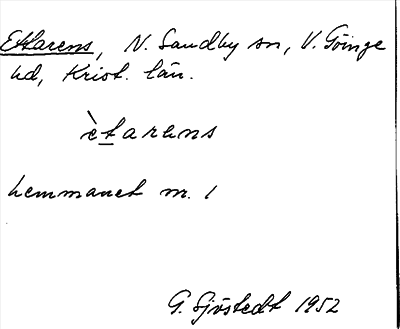 Ettarens, N. Sandby sn, V. Göinge
hd, Krist. län.
ètarens
hemmanet nr. 1
G. Sjöstedt 1952